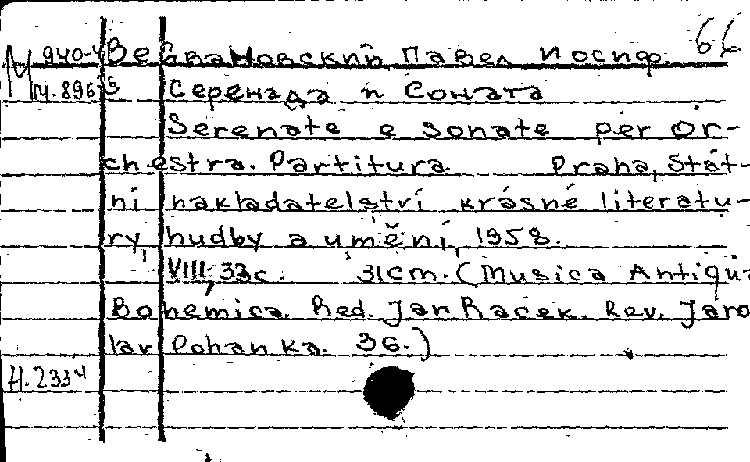 66
М 940-4 Вейвановский, Павел Иосиф.
м.896 Серенада и Соната
Serenate e sonate per or-
chestra. Partitura Praha, Stát-
ní nakladatelství krásné literatu-
ry, hudby a umění, 1958.
VIII, 33 с. 31 cm. (Musica Antiqua
Bohemica. Red. Jan Racek. Rev. Jaro
lav Pohanka. 36.)
Н. 2334